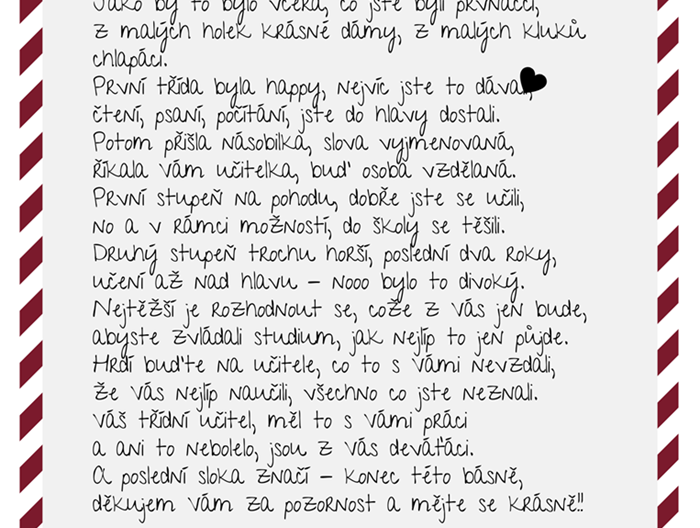 Jako by to bylo včera, co jste byli prvňáčci,
z malých holek krásné dámy, z malých kluků
chlapáci.
První třída byla happy, nejvíc jste to dávali,
čtení, psaní, počítání, jste do hlavy dostali.
Potom přišla násobilka, slova vyjmenovaná,
říkala vám učitelka, buď osoba vzdělaná.
První stupeň na pohodu, dobře jste se učili,
no a v rámci možností, do školy se těšili.
Druhý stupeň trochu horší, poslední dva roky,
učení až nad hlavu – nooo bylo to divoký.
Nejtěžší je rozhodnout se, cože z vás jen bude,
abyste zvládali studium, jak nejlíp to jen půjde.
Hrdí buďte na učitele, co to s vámi nevzdali,
že vás nejlíp naučili, všechno co jste neznali.
Váš třídní učitel, měl to s vámi práci
a ani to nebolelo, jsou z vás deváťáci.
A poslední sloka značí – konec této básně,
děkujem vám za pozornost a mějte se krásně!!